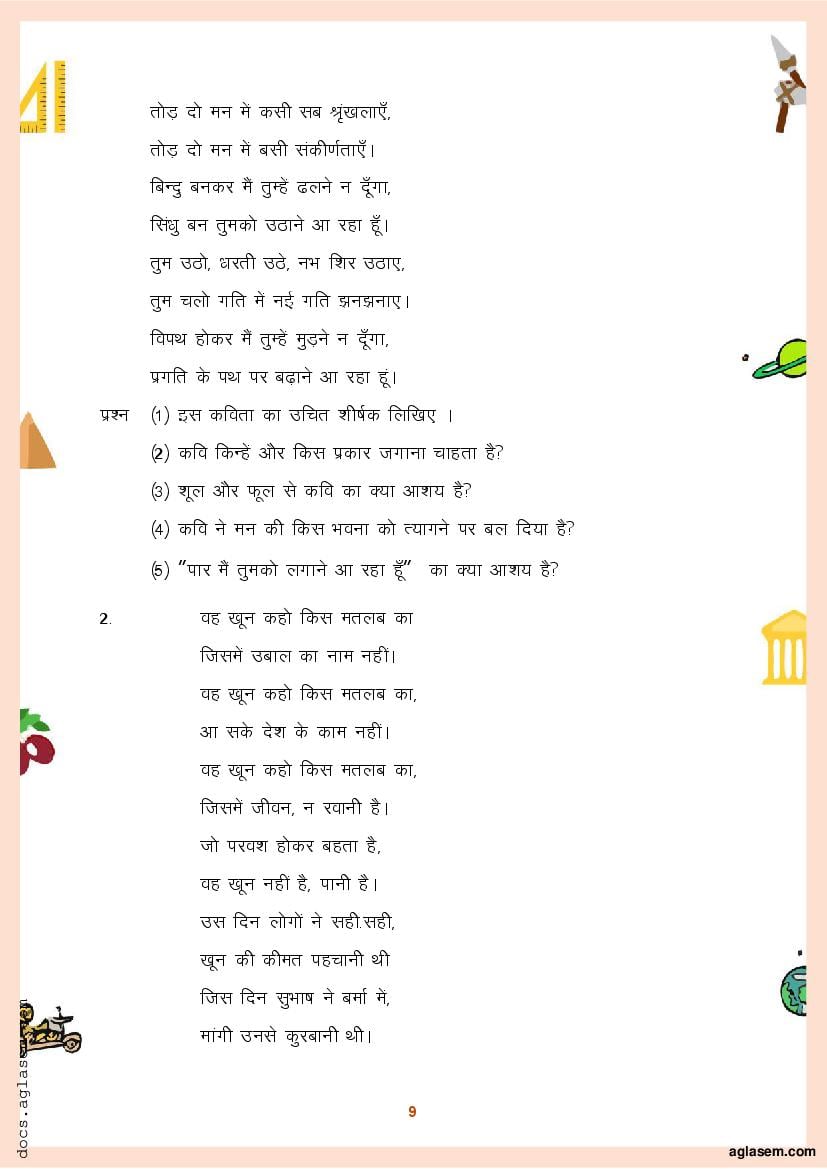 तोड़ दो मन में कसी सब श्रृंखलाएँ,
तोड़ दो मन में बसी संकीर्णताएँ।
बिन्दु बनकर मैं तुम्हें ढलने न दूँगा,
सिंधु बन तुमको उठाने आ रहा हूँ।
तुम उठो, धरती उठे, नभ शिर उठाए,
तुम चलो गति में नई गति झनझनाए।
विपथ होकर मैं तुम्हें मुड़ने न दूँगा,
प्रगति के पथ पर बढ़ाने आ रहा हूं।
प्रश्न (1) इस कविता का उचित शीर्षक लिखिए ।
(2) कवि किन्हें और किस प्रकार जगाना चाहता है?
(3) शूल और फूल से कवि का क्या आशय है?
(4) कवि ने मन की किस भवना को त्यागने पर बल दिया है?
(5) "पार मैं तुमको लगाने आ रहा हूँ" का क्या आशय है?
2. वह खून कहो किस मतलब का
जिसमें उबाल का नाम नहीं।
वह खून कहो किस मतलब का,
आ सके देश के काम नहीं।
वह खून कहो किस मतलब का,
जिसमें जीवन, न रवानी है।
जो परवश होकर बहता है,
वह खून नहीं है, पानी है।
उस दिन लोगों ने सही.सही,
खून की कीमत पहचानी थी
जिस दिन सुभाष ने बर्मा में,
मांगी उनसे कुरबानी थी।
9
docs.aglasem.com
aglasem.com